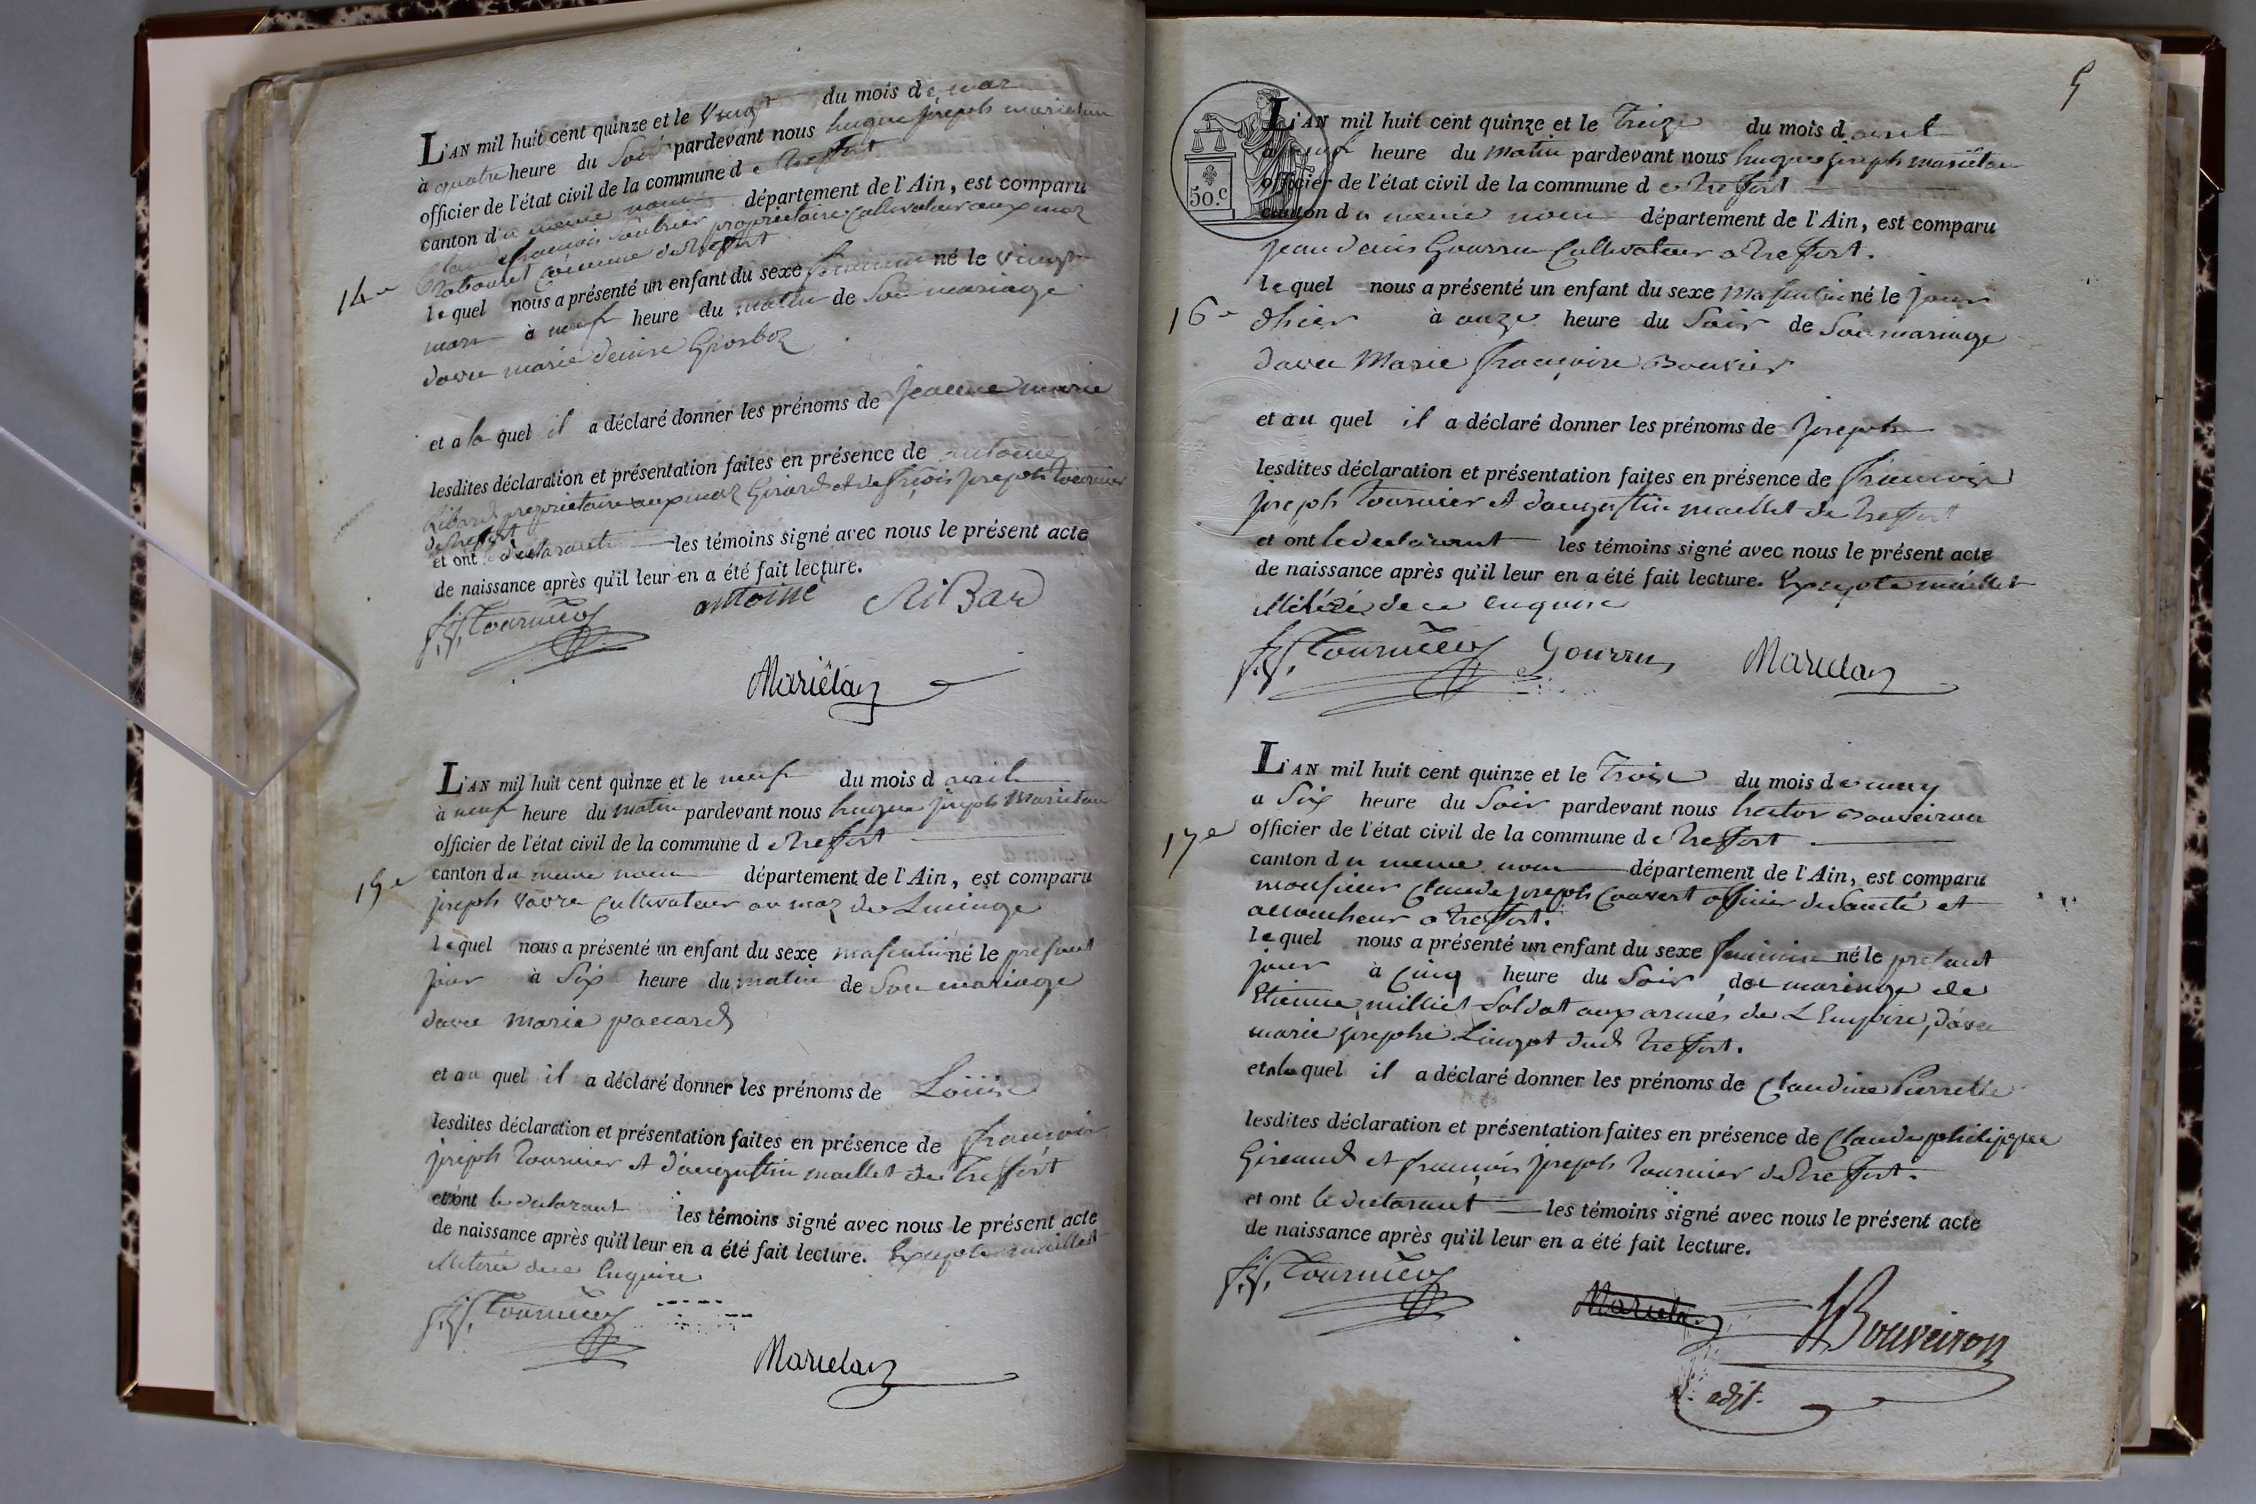 L'AN mil huit cent quinze et le vingt du mois de mars
à quatre heure du Soir pardevant nous hugue joseph marietan
officier de l'état civil de la commune de treffort
canton du meme nom département de l'Ain, est comparu
françois proprietaire Cultivateur aux maz
Commune de treffort
14e
lequel nous a présenté un enfant du sexe feminin né le vingt
mars à neuf heure du matin de Son mariage
davec marie denise Grosboz
et a la quel il a déclaré donner les prénoms de jeanne marie
lesdites déclaration et présentation faites en présence de antoine
Ribard proprietaire aux maz Girard et de frçois joseph tournier
de treffort
et ont le declarant les témoins signé avec nous le présent acte
de naissance après qu'il leur en a été fait lecture.
f. j. Tournier antoine RiBar
Mariétan
L'AN mil huit cent quinze et le neuf du mois d avril
à neuf heure du matin pardevant nous hugue joseph Marietan
officier de l'état civil de la commune de treffort
15e
canton du meme nom département de l'Ain, est comparu
joseph vavre Cultivateur au maz de Lucinge
lequel nous a présenté un enfant du sexe masculin né le présent
jour à Six heure du matin de Son mariage
davec marie paccard
et au quel il a déclaré donner les prénoms de Loüis
lesdites déclaration et présentation faites en présence de francois
joseph Tournier et d'augustin maillet de Treffort
et ont le declarant les témoins signé avec nous le présent acte
de naissance après qu'il leur en a été fait lecture. Excepté maillet
illiteré de ce Enquis
f. j. Tournier
Marietan
5
50.c
L'AN mil huit cent quinze et le Treize du mois d avril
à neuf heure du matin pardevant nous hugue joseph mariétan
officier de l'état civil de la commune de treffort
canton du meme nom département de l'Ain, est comparu
jean denis Gourru Cultivateur a treffort.
lequel nous a présenté un enfant du sexe masculin né le jour
16e
dhier à onze heure du Soir de Son mariage
davec Marie françoise Bouvier
et au quel il a déclaré donner les prénoms de joseph
lesdites déclaration et présentation faites en présence de francois
joseph Tournier et d'augustin maillet de treffort
et ont le declarant les témoins signé avec nous le présent acte
de naissance après qu'il leur en a été fait lecture. Excepté maillet
illitéré de ce enquis
f. j. Tournier Gourru Marietan
L'AN mil huit cent quinze et le Trois du mois de may
a Six heure du Soir pardevant nous hector Bouveiron
17e
officier de l'état civil de la commune de treffort
canton du meme nom département de l'Ain, est comparu
monsieur Claude joseph Couvert officier de Santé et
accoucheur a treffort.
lequel nous a présenté un enfant du sexe feminin né le présent
jour à Cinq heure du Soir, de mariage de
Etienne milliet Soldat aux armés de L Empire, davec
marie josephe Lingot dud. treffort.
et a la quel il a déclaré donner les prénoms de Claudine Pierrette
lesdites déclaration et présentation faites en présence de Claude philippe
Gireaud et francois joseph Tournier de treffort.
et ont le declarant les témoins signé avec nous le présent acte
de naissance après qu'il leur en a été fait lecture.
f. j. Tournier Marietan HBouveiron
adjt.